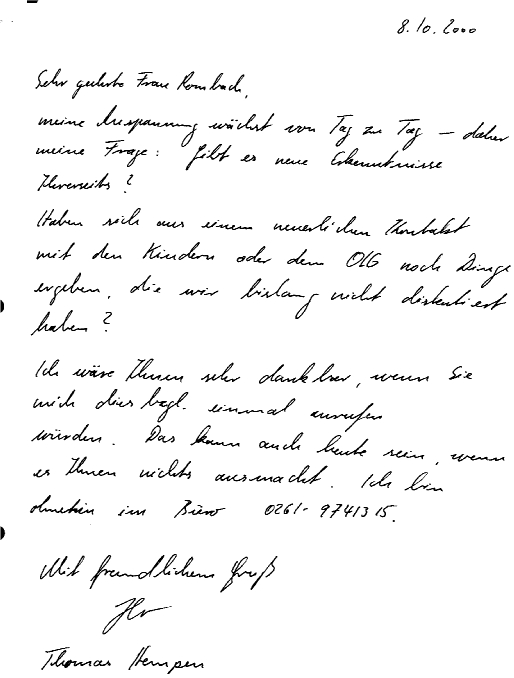 8.10.2000
Sehr geehrte Frau Rombach,
meine Anspannung wächst von Tag zu Tag – daher
meine Frage: Gibt es neue Erkenntnisse
Ihrerseits?
Haben sich aus einem neuerlichen Kontakt
mit den Kindern oder dem OLG noch Dinge
ergeben, die wir bislang nicht diskutiert
haben?
Ich wäre Ihnen sehr dankbar, wenn Sie
mich diesbzgl. einmal anrufen
würden. Das kann auch heute sein, wenn
es Ihnen nichts ausmacht. Ich bin
ohnehin im Büro 0261-9741315.
Mit freundlichem Gruß
Ihr
Thomas Hempen